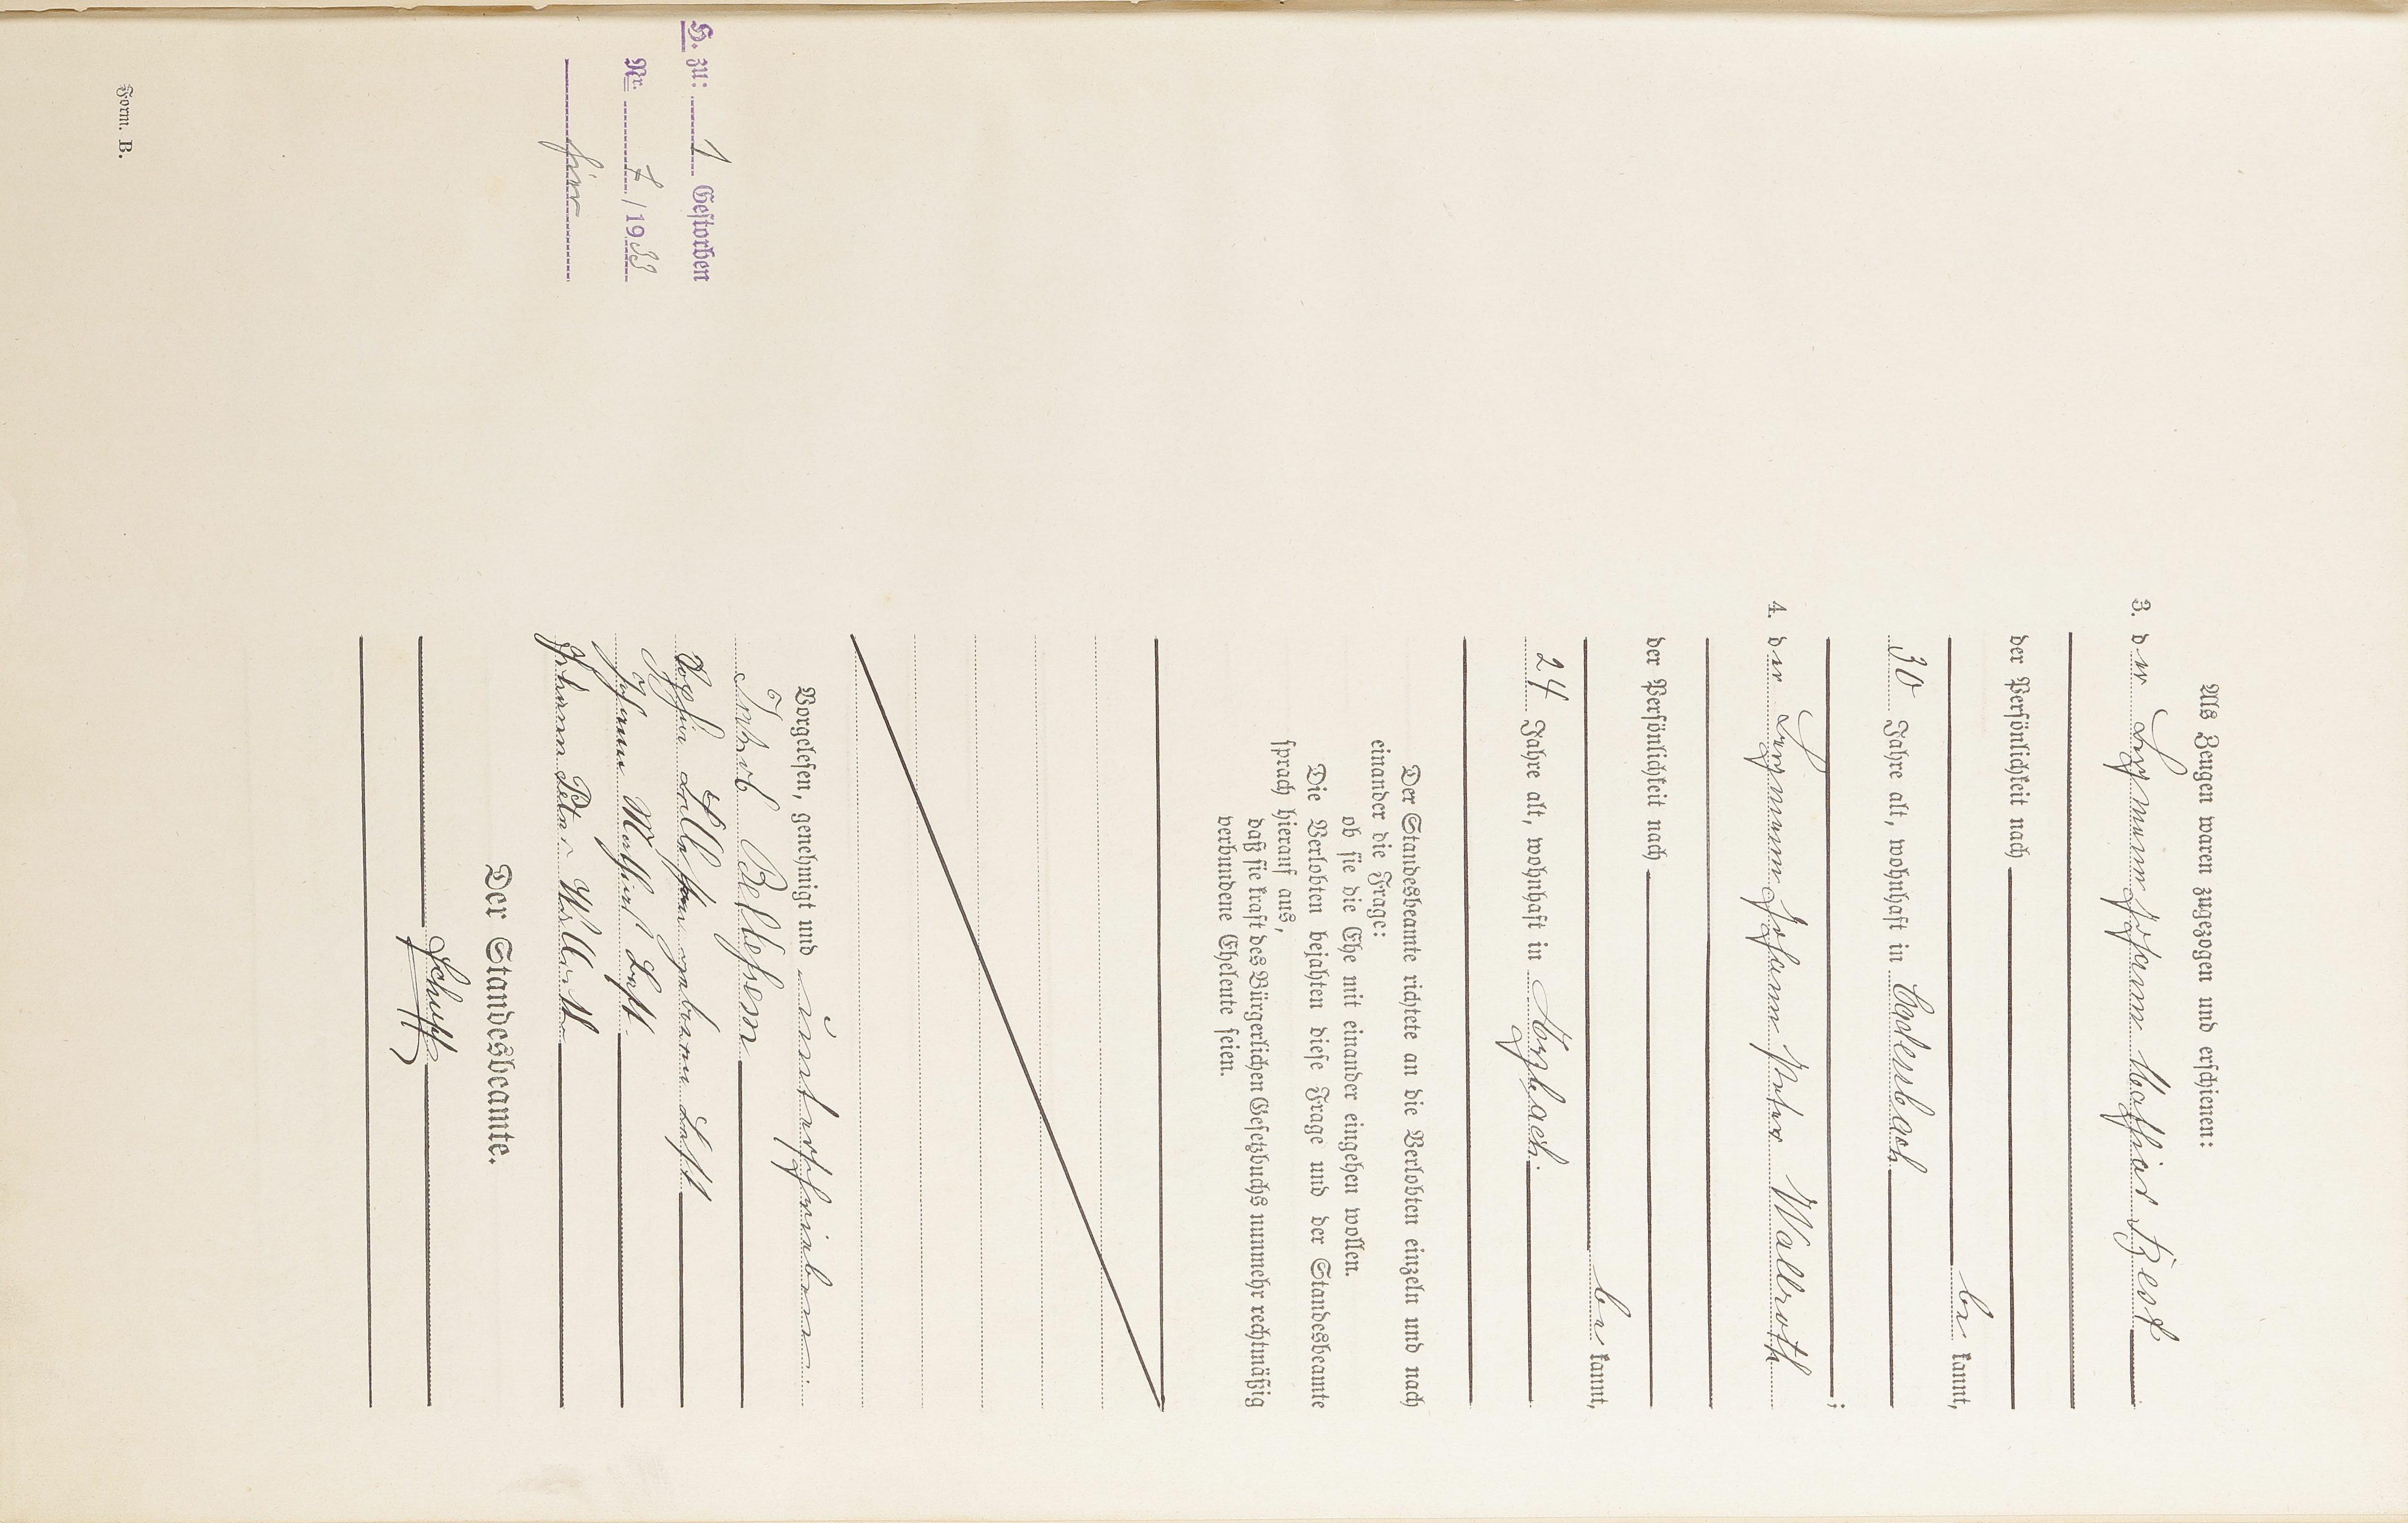 Als Zeugen waren zugezogen und erschienen:
3. der Bergmann Johann Mathias Best
der Persönlichkeit nach
be kannt,
30 Jahre alt, wohnhaft in
;
4. der Bergmann Johann Peter Wallroth
der Persönlichkeit nach
be kannt,
24 Jahre alt, wohnhaft in
Der Standesbeamte richtete an die Verlobten einzeln und nach
einander die Frage:
ob sie die Ehe mit einander eingehen wollen.
Die Verlobten bejahten diese Frage und der Standesbeamte
sprach hierauf aus,
daß sie kraft des Bürgerlichen Gesetzbuchs nunmehr rechtmäßig
verbundene Eheleute seien.
Vorgelesen, genehmigt und unterschrieben
Jakob
geborene Best
Johann Mathias Best
Johann Peter Wallroth
Der Standesbeamte.
H. zu: 1 Gestorben
Nr. /1933
hier
Form. B.